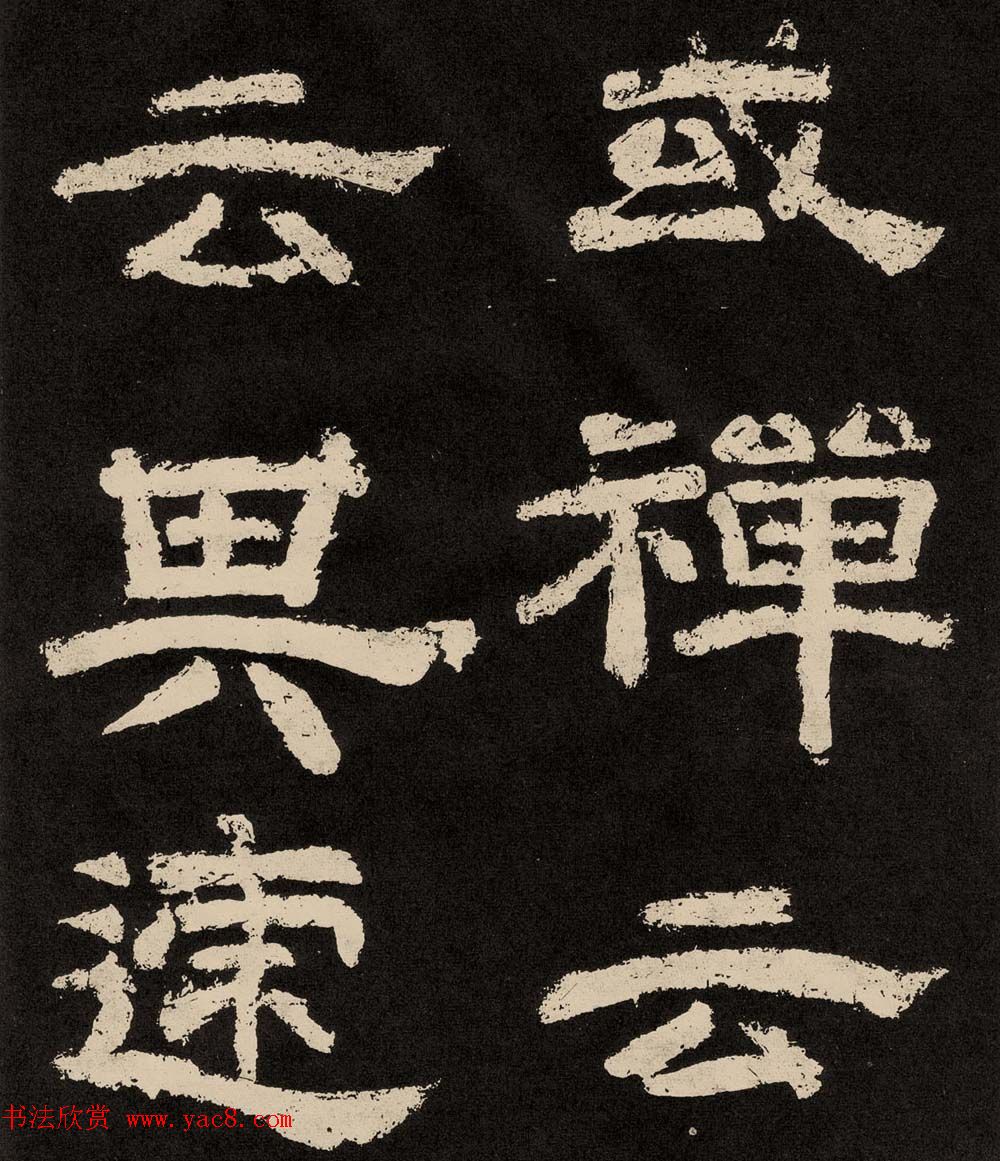 或禪云
云異速
书法欣赏 www.yac8.com